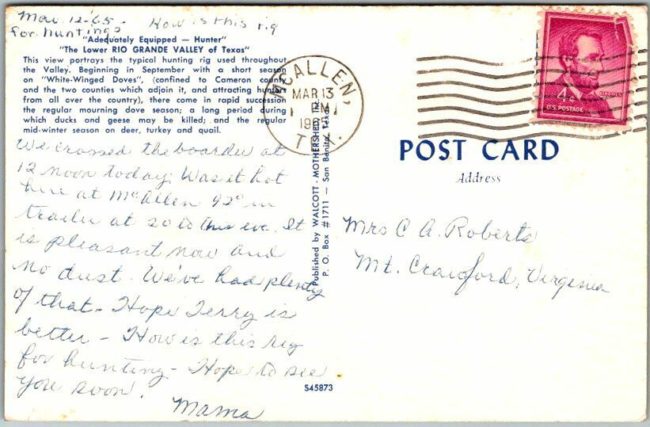 Mar 12-65. How is this rig
for hunting?
"Adequately Equipped — Hunter"
"The Lower RIO GRANDE VALLEY of Texas"
This view portrays the typical hunting rig used throughout
the Valley. Beginning in September with a short season
on "White-Winged Doves", (confined to Cameron county
and the two counties which adjoin it, and attracting hunters
from all over the country), there come in rapid succession
the regular mourning dove season; a long period during
which ducks and geese may be killed; and the regular
mid-winter season on deer, turkey and quail.
We crossed the boarder at
12 noon today. Was it hot
here at McAllen 92° in
trailer at 20 to this eve. It
is pleasant now and
no dust. We've had plenty
of that - Hope Terry is
better - How is this rig
for hunting - Hope to see
you soon.
Mama
McALLEN,
MAR 13
1 PM
TEX.
Published by WALCOTT-MOTHERSHED
P. O. Box #1711 — San Benito, Texas
S45873
4¢
U.S. POSTAGE
POST CARD
Address
Mrs C A. Roberts
Mt. Crawford, Virginia